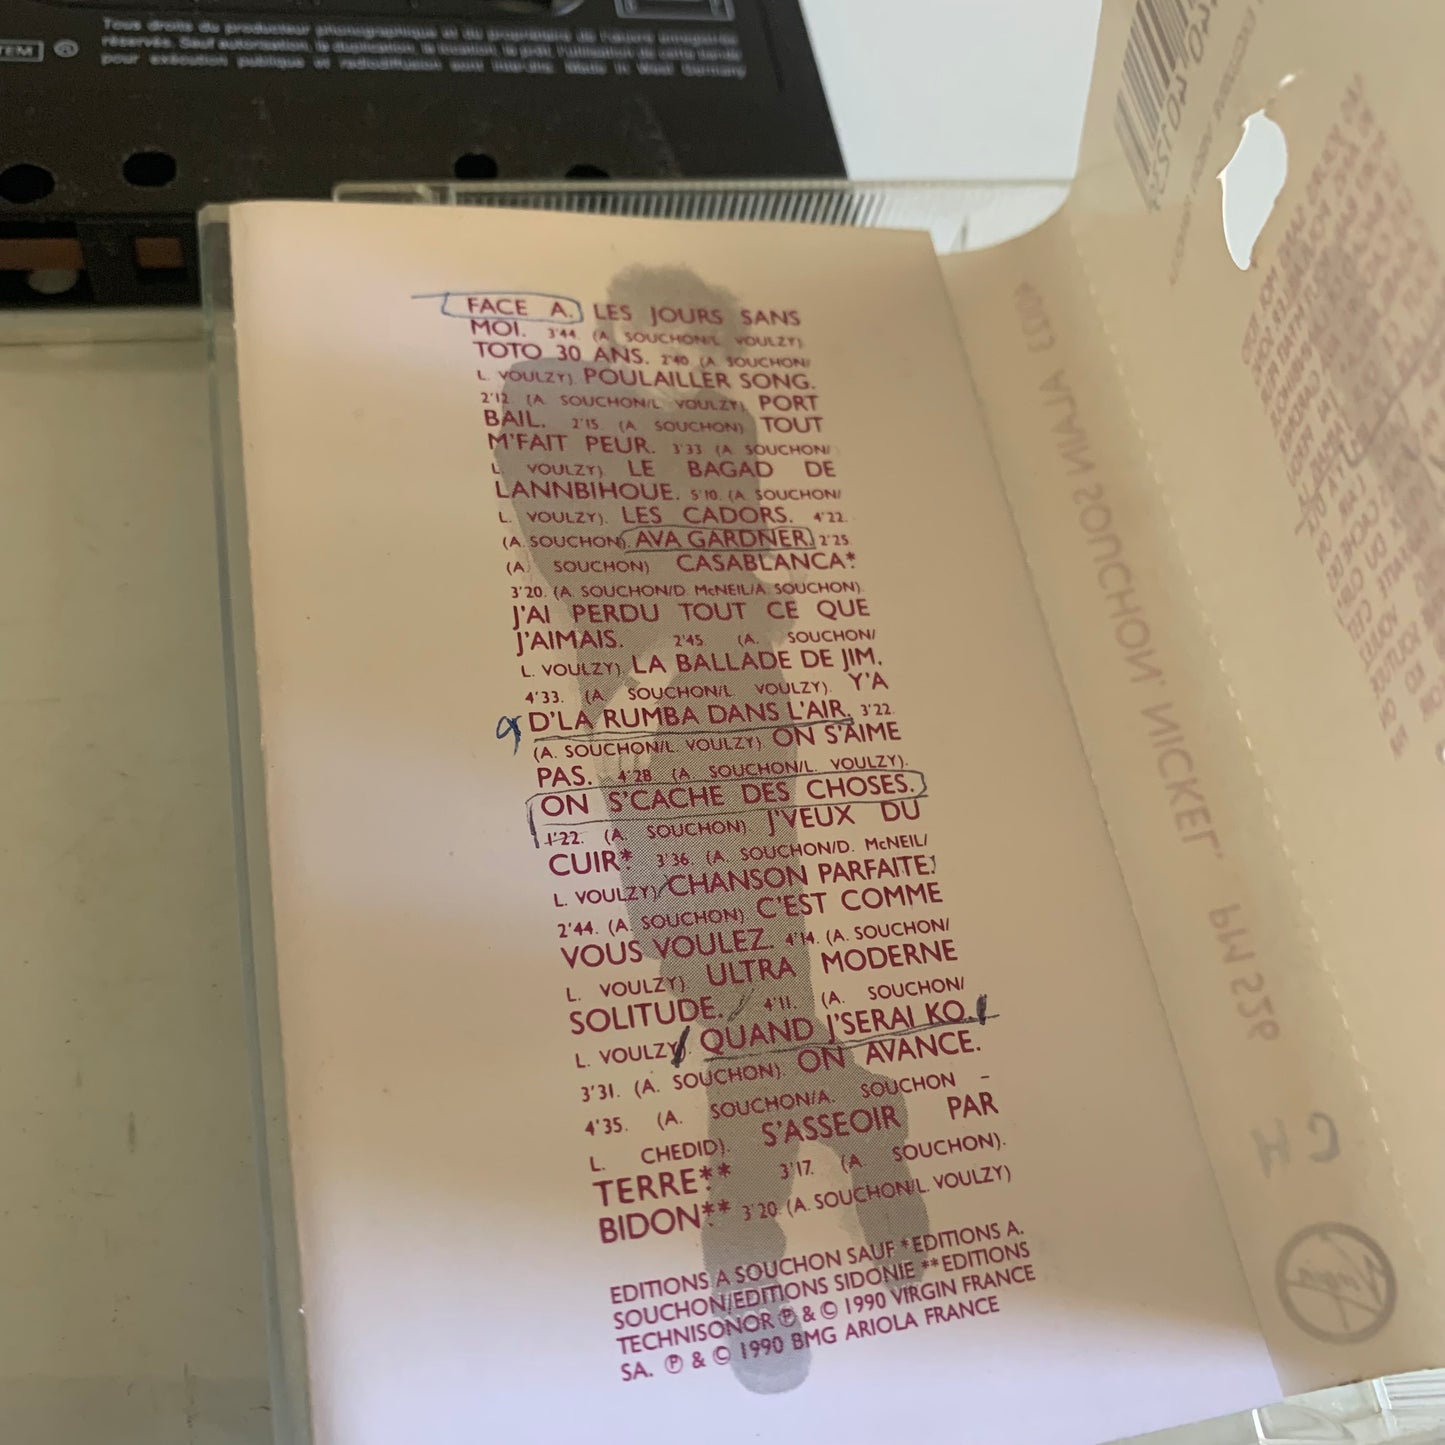 Tous droits du producteur phonographique et du propriétaire de l'œuvre enregistrée
réservés. Sauf autorisation, la duplication, la location, le prêt, l'utilisation de cette bande
pour exécution publique et radiodiffusion sont interdits. Made in West Germany
TEM
FACE A. LES JOURS SANS
MOI. 3'44. (A. SOUCHON/L. VOULZY)
TOTO 30 ANS. 2'40. (A. SOUCHON/
L. VOULZY). POULAILLER SONG.
2'12. (A. SOUCHON/L. VOULZY). PORT
BAIL. 2'15. (A. SOUCHON) TOUT
M'FAIT PEUR. 3'33. (A. SOUCHON/
L. VOULZY). LE BAGAD DE
LANNBIHOUE. 5'10. (A. SOUCHON/
L. VOULZY). LES CADORS. 4'22.
(A. SOUCHON). AVA GARDNER. 2'25.
(A. SOUCHON) CASABLANCA*
3'20. (A. SOUCHON/D. McNEIL/A. SOUCHON).
J'AI PERDU TOUT CE QUE
J'AIMAIS. 2'45. (A. SOUCHON/
L. VOULZY). LA BALLADE DE JIM.
4'33. (A. SOUCHON/L. VOULZY). Y'A
D'LA RUMBA DANS L'AIR. 3'22.
(A. SOUCHON/L. VOULZY). ON S'AIME
PAS. 4'28. (A. SOUCHON/L. VOULZY).
ON S'CACHE DES CHOSES.
1'22. (A. SOUCHON). J'VEUX DU
CUIR* 3'36. (A. SOUCHON/D. McNEIL/
L. VOULZY). CHANSON PARFAITE.
2'44. (A. SOUCHON). C'EST COMME
VOUS VOULEZ. 4'14. (A. SOUCHON/
L. VOULZY). ULTRA MODERNE
SOLITUDE. 4'11. (A. SOUCHON/
L. VOULZY). QUAND J'SERAI KO.
3'31. (A. SOUCHON). ON AVANCE.
4'35. (A. SOUCHON/A. SOUCHON –
L. CHEDID). S'ASSEOIR PAR
TERRE** 3'17. (A. SOUCHON).
BIDON** 3'20. (A. SOUCHON/L. VOULZY)
EDITIONS A SOUCHON SAUF *EDITIONS A.
SOUCHON/EDITIONS SIDONIE **EDITIONS
TECHNISONOR ℗ & © 1990 VIRGIN FRANCE
SA. ℗ & © 1990 BMG ARIOLA FRANCE
ALAIN SOUCHON "NICKEL" PM 529
CH